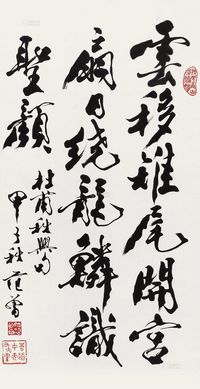 雲移雉尾開宮
扇日繞龍鱗識
聖顏
杜甫秋興句
甲子秋范曾